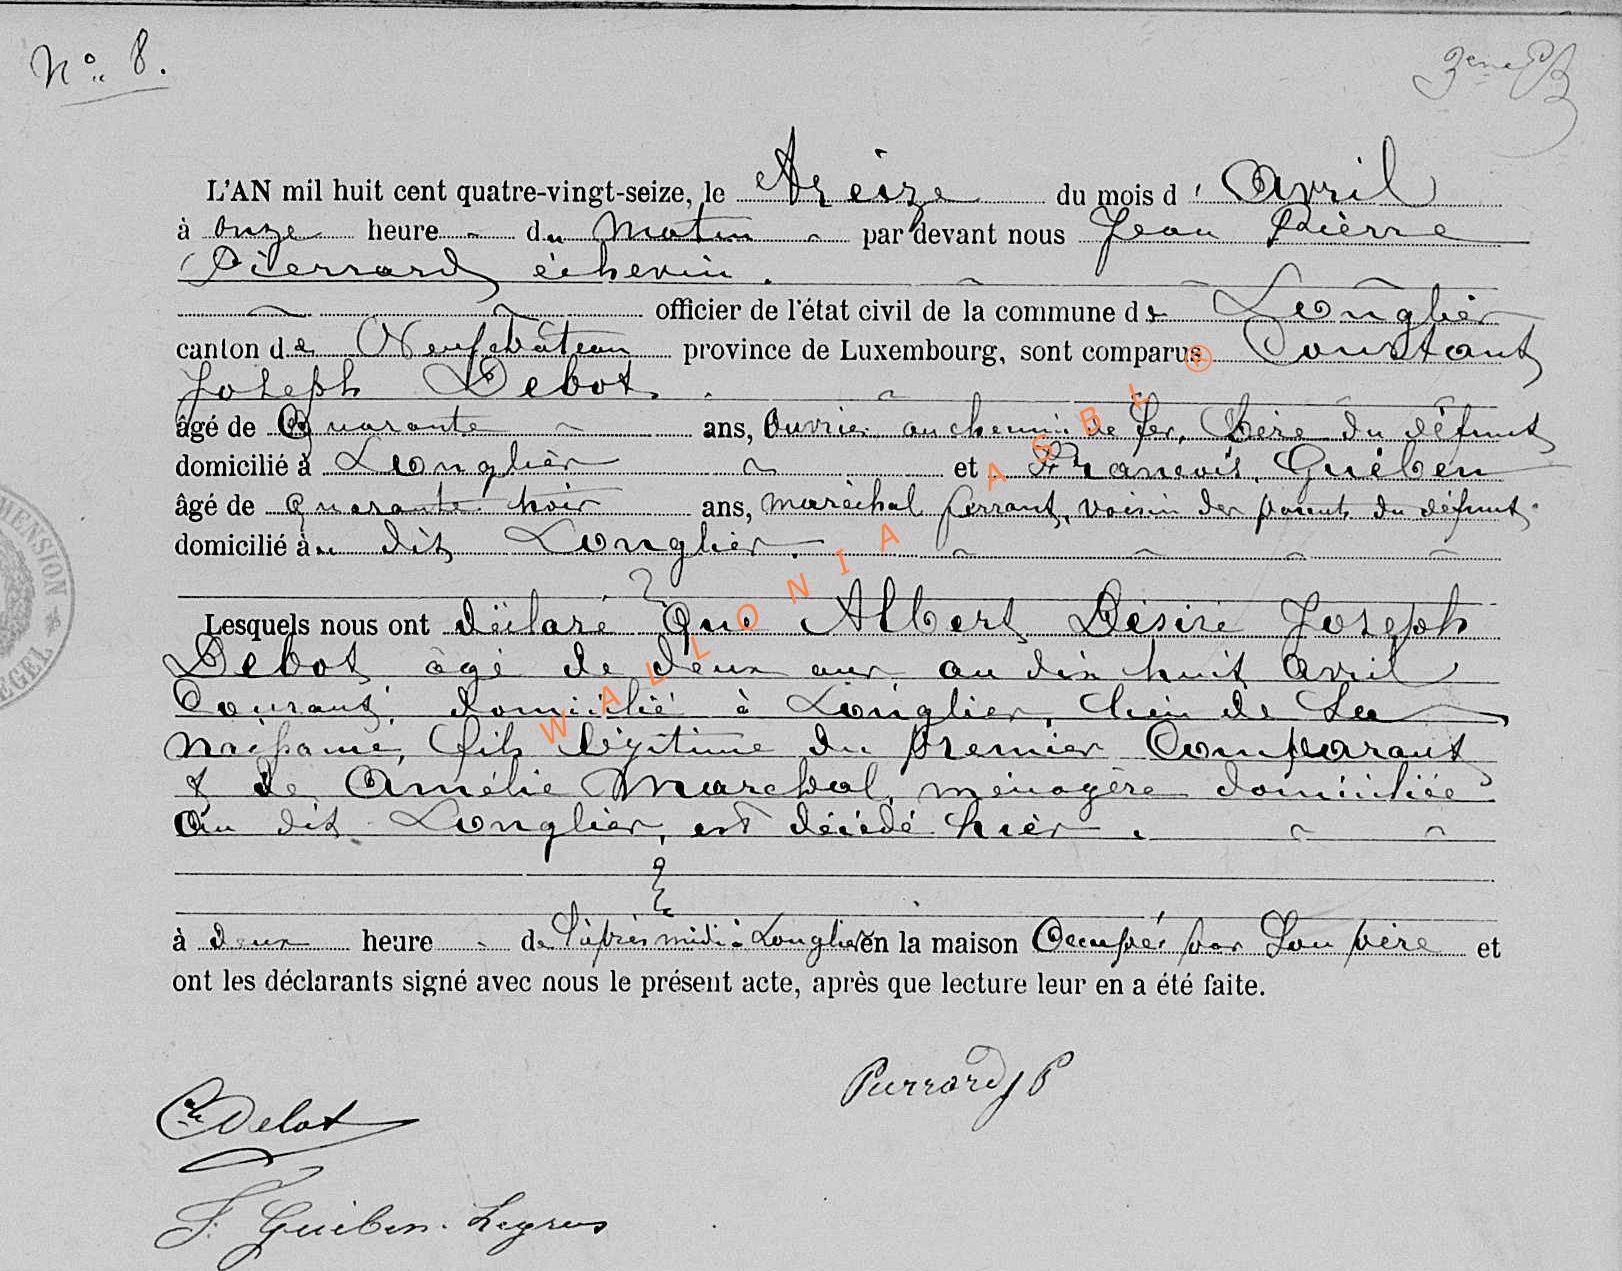 N° 8.
L'AN mil huit cent quatre-vingt-seize, le treize du mois d'Avril
à onze heure du Matin par devant nous Jean Pierre
Pierrard échevin.
officier de l'état civil de la commune de Longlier
canton de Neufchâteau province de Luxembourg, sont comparus Constant
Joseph Debot
âgé de Quarante ans, Ouvrier au chemin de fer, Père du défunt
domicilié à Longlier et François Guében
âgé de quarante trois ans, maréchal ferrant, voisin des parents du défunt.
domicilié au dit Longlier.
Lesquels nous ont déclaré Que Albert Désiré Joseph
Debot âgé de deux ans au dix huit avril
Courant, domicilié à Longlier, lieu de Sa
naissance, fils légitime du premier Comparant
& de Amélie Marchal, ménagère domiciliée
Au dit Longlier, est décédé hièr.
à deux heure de l'après midi à Longlier en la maison Occupée par Son père et
ont les déclarants signé avec nous le présent acte, après que lecture leur en a été faite.
Pierrard JP
Debot
F. Guében-Legros
WALLONIA ASBL ®
MENSION